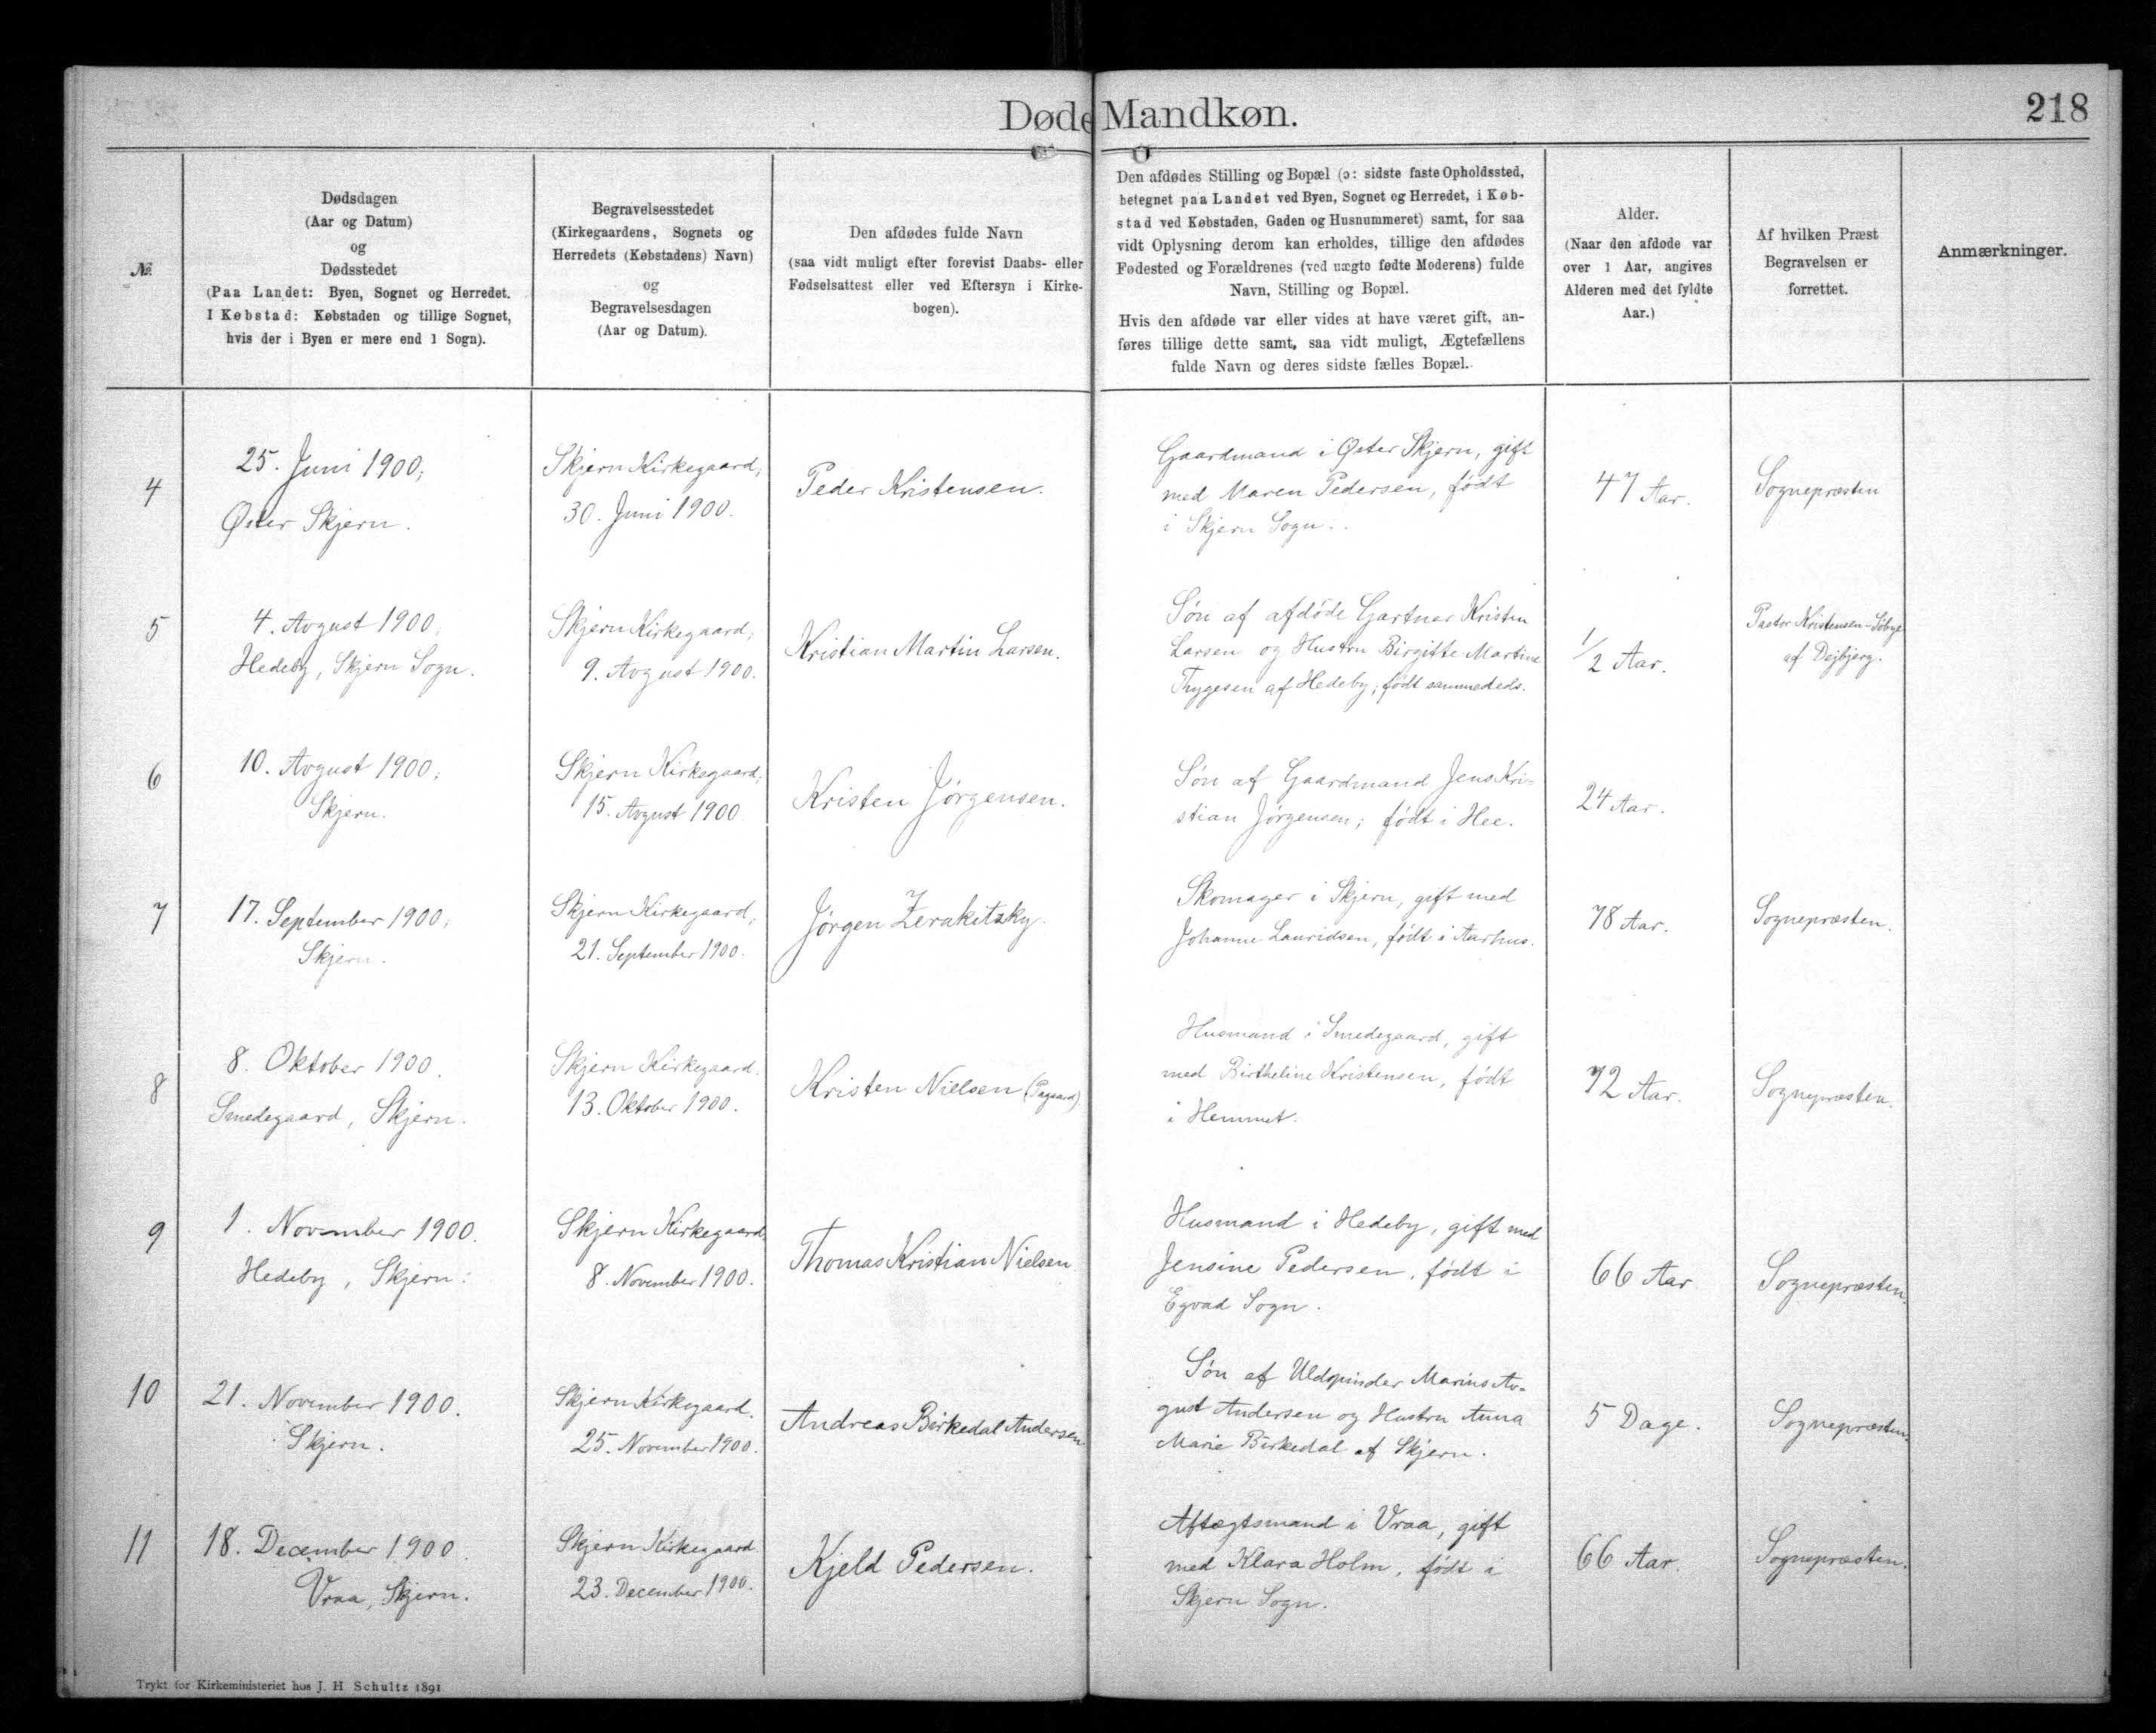 Døde Mandkøn.
218
№
Dødsdagen
(Aar og Datum)
og
Dødsstedet
(Paa Landet: Byen, Sognet og Herredet.
I Købstad: Købstaden og tillige Sognet,
hvis der i Byen er mere end 1 Sogn).
Begravelsesstedet
(Kirkegaardens, Sognets og
Herredets (Købstadens) Navn)
og
Begravelsesdagen
(Aar og Datum).
Den afdødes fulde Navn
(saa vidt muligt efter forevist Daabs- eller
Fødselsattest eller ved Eftersyn i Kirke-
bogen).
Den afdødes Stilling og Bopæl (ɔ: sidste faste Opholdssted,
betegnet paa Landet ved Byen, Sognet og Herredet, i Køb-
stad ved Købstaden, Gaden og Husnummeret) samt, for saa
vidt Oplysning derom kan erholdes, tillige den afdødes
Fødested og Forældrenes (ved uægte fødte Moderens) fulde
Navn, Stilling og Bopæl.
Hvis den afdøde var eller vides at have været gift, an-
føres tillige dette samt, saa vidt muligt, Ægtefællens
fulde Navn og deres sidste fælles Bopæl.
Alder.
(Naar den afdøde var
over 1 Aar, angives
Alderen med det fyldte
Aar.)
Af hvilken Præst
Begravelsen er
forrettet.
Anmærkninger.
4
25. Juni 1900;
Øster Skjern.
Skjern Kirkegaard;
30. Juni 1900.
Peder Kristensen.
Gaardmand i Øster Skjern, gift
med Maren Pedersen, født
i Skjern Sogn.
47 Aar.
Sognepræsten
5
4. Avgust 1900.
Hedeby, Skjern Sogn.
Skjern Kirkegaard;
9. Avgust 1900.
Kristian Martin Larsen.
Søn af afdøde Gartner Kristen
Larsen og Hustru Birgitte Martine
Thygesen af Hedeby; født sammesteds.
1/2 Aar.
Pastor Kristensen-Söbye
af Dejbjerg.
6
10. Avgust 1900;
Skjern.
Skjern Kirkegaard;
15. Avgust 1900
Kristen Jørgensen.
Søn af Gaardmand Jens Kri-
stian Jørgensen; født i Hee.
24 Aar.
7
17. September 1900;
Skjern.
Skjern Kirkegaard;
21. September 1900.
Jørgen Zerakitzky.
Skomager i Skjern, gift med
Johanne Lauridsen, født i Aarhus.
78 Aar.
Sognepræsten.
8
8. Oktober 1900.
Smedegaard, Skjern.
Skjern Kirkegaard.
13. Oktober 1900.
Kristen Nielsen (Pagaard)
Husmand i Smedegaard, gift
med Birtheline Kristensen, født
i Hemmet.
72 Aar.
Sognepræsten.
9
1. November 1900.
Hedeby, Skjern.
Skjern Kirkegaard
8. November 1900.
Thomas Kristian Nielsen
Husmand i Hedeby, gift med
Jensine Pedersen, født i
Egvad Sogn.
66 Aar
Sognepræsten.
10
21. November 1900.
Skjern.
Skjern Kirkegaard.
25. November 1900.
Andreas Birkedal Andersen
Søn af Uldspinder Marius Av-
gust Andersen og Hustru Anna
Marie Birkedal af Skjern.
5 Dage.
Sognepræsten.
11
18. December 1900.
Vraa, Skjern.
Skjern Kirkegaard
23. December 1900.
Kjeld Pedersen.
Aftægtsmand i Vraa, gift
med Klara Holm, født i
Skjern Sogn.
66 Aar.
Sognepræsten.
Trykt for Kirkeministeriet hos J. H Schultz 1891